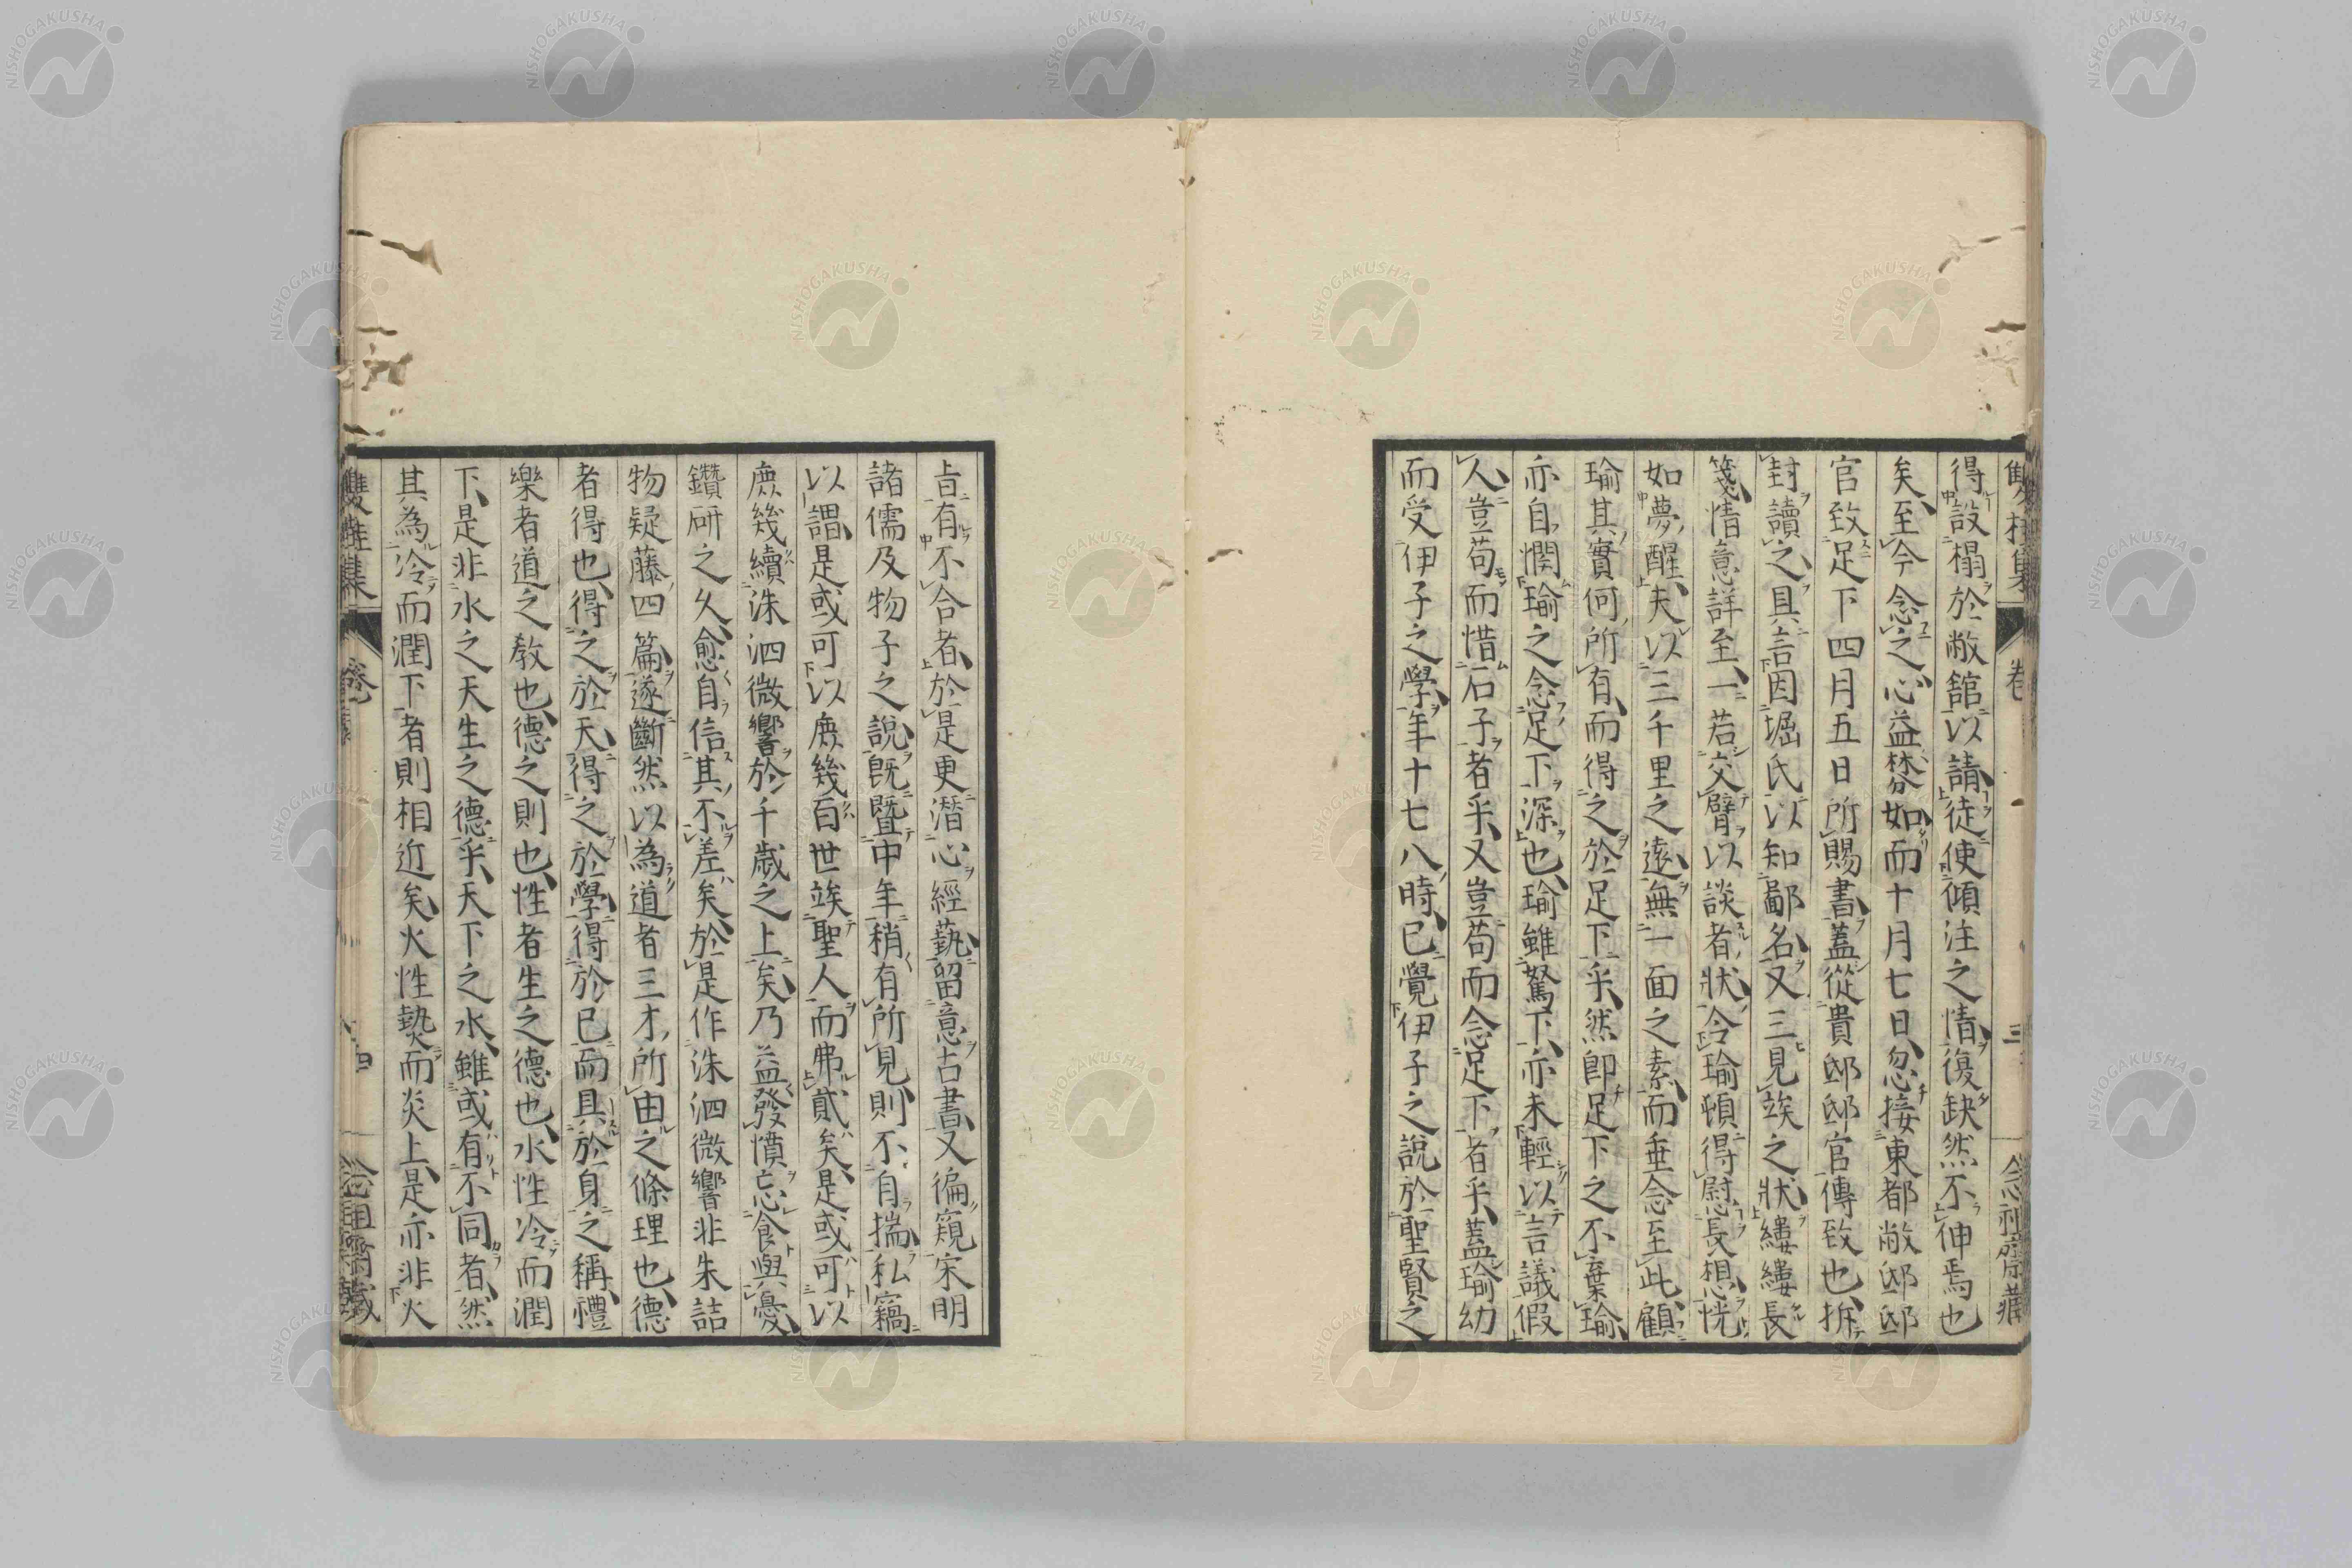 得設榻於敝舘以請徒使傾注之情復缺然不伸焉也
矣至今念之心益棼如而十月七日忽接東都敝邸邸
官致足下四月五日所賜書蓋從貴邸邸官傳致也拆
封讀之具言因堀氏以知鄙名又三見竢之狀縷縷長
箋情意詳至一若交臂以談者狀令瑜頓得慰長想恍
如夢醒夫以三千里之遠無一面之素而垂念至此顧
瑜其實何所有而得之於足下乎然即足下之不棄瑜
亦自憫瑜之念足下深也瑜雖駑下亦未輕以言議假
人豈苟而惜石子者乎又豈苟而念足下者乎蓋瑜幼
而受伊子之學年十七八時已覺伊子之說於聖賢之
旨有不合者於是更潛心經藝留意古書又徧窺宋明
諸儒及物子之說既暨中年稍有所見則不自揣私竊
以謂是或可以庶幾百世竢聖人而弗貳矣是或可以
庶幾續洙泗微響於千歲之上矣乃益發憤忘食與憂
鑽研之久愈自信其不差矣於是作洙泗微響非朱詰
物疑藤四篇遂斷然以為道者三才所由之條理也德
者得也得之於天得之於學得於已而具於身之稱禮
樂者道之教也德之則也性者生之德也水性冷而潤
下是非水之天生之德乎天下之水雖或有不同者然
其為冷而潤下者則相近矣火性熱而炎上是亦非火
卷
四
卷
三
NISHOGAKUSHA